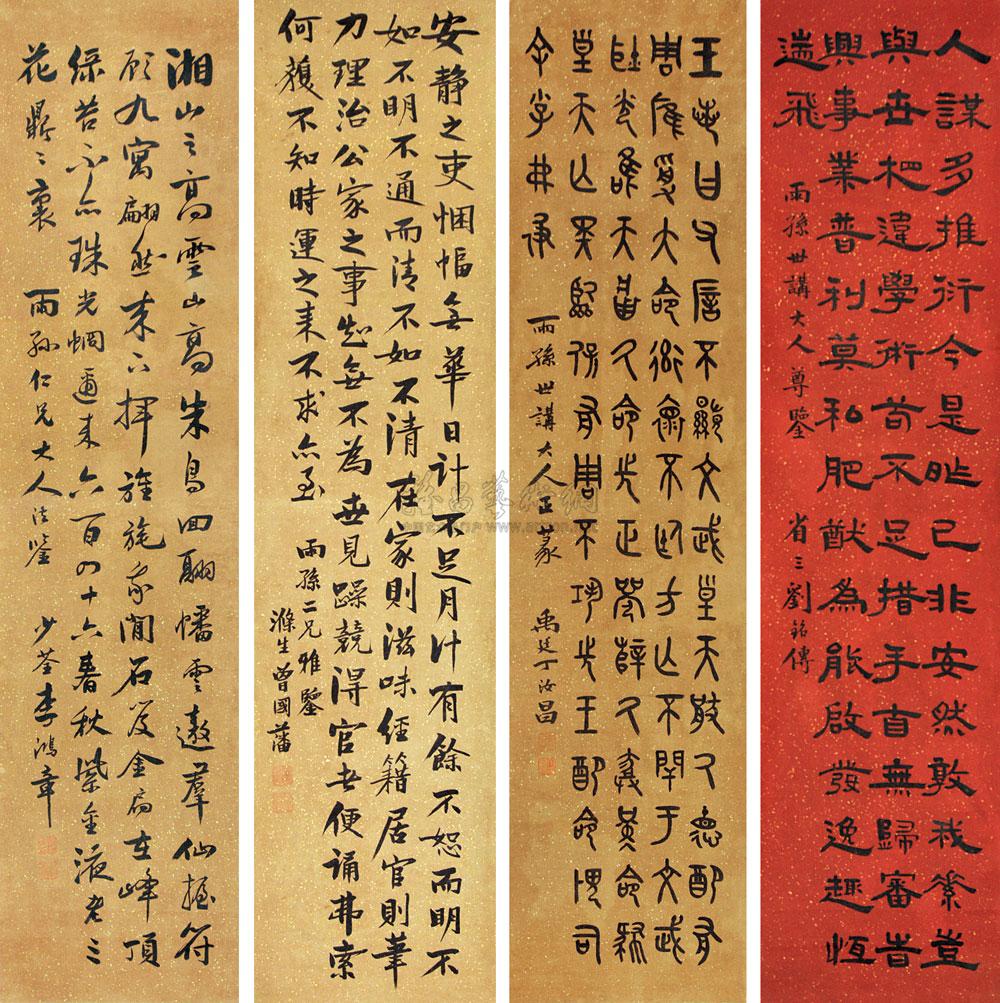 人謀多推衍今是昨已非安然敦我素豈
與世相違學術苟不足措手百無歸審昔
興事業普利莫私肥猷為能啟發逸趣恆
遄飛
雨孫世講大人尊鑒 省三劉銘傳
王若曰父厝不顯文武皇天猒厥德配有
周雁受大命衒褱不廷方亡不閈于文武
耿光唯天厥命先正辥厥命
皇天亡斁臨保有周不巩先王配命畏司
余小弗
雨孫世講大人正篆 禹廷丁汝昌
安靜之吏悃愊無華日計不足月計有餘不恕而明不
如不明不通而清不如不清在家則滋味經籍居官則筆
力理治公家之事知無不為世見躁競得官者便誦弗索
何獲不知時運之来不求亦至
雨孫二兄雅鑒
滌生曾國藩
湘山之高雲山高朱鳥回翔幡雲遨羣仙握符
顧九寓翩然来下揮旌旄我聞石笈金扃在峰頂
綠苔不亦珠光炯邇来六百四十六春秋紫金液老三
花鼎〻裏 雨孫仁兄大人法鑒 少荃李鴻章